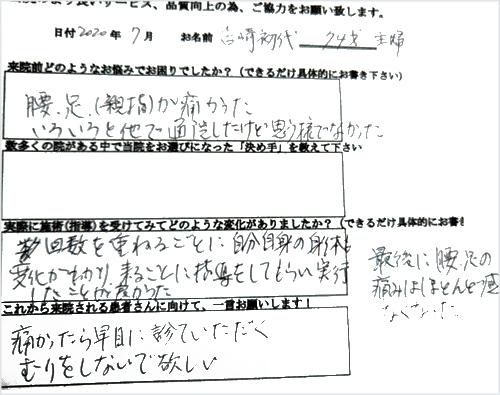 より良いサービス、品質向上の為、ご協力をお願い致します。
日付 2020年 7月 お名前 宮崎初代 クサオ 主婦
来院前どのようなお悩みでお困りでしたか？（できるだけ具体的にお書き下さい）
腰、足、（親指）が痛かった
いろいろと他で通院したけど思う様でなかった
数多くの院がある中で当院をお選びになった「決め手」を教えて下さい
実際に施術（指導）を受けてみてどのような変化がありましたか？（できるだけ具体的にお書き
回数を重ねるごとに自分自身の身体
変化がわかり 来るごとに指導をしてもらい実行
したことが良かった
最後に腰、足の
痛みはほとんど感
なくなった
これから来院される患者さんに向けて、一言お願いします！
痛かったら早目に診ていただく
むりをしないで欲しい